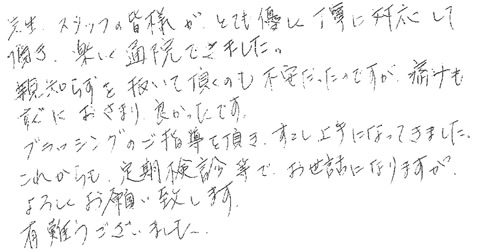 先生、スタッフの皆様が、とても優しく丁寧に対応して
頂き、楽しく通院できました。
親知らずを抜いて頂くのも不安だったのですが、痛みも
すぐにおさまり、良かったです。
ブラッシングのご指導を頂き、すこし上手になってきました。
これからも、定期検診等で、お世話になりますが、
よろしくお願い致します。
有難うございました。